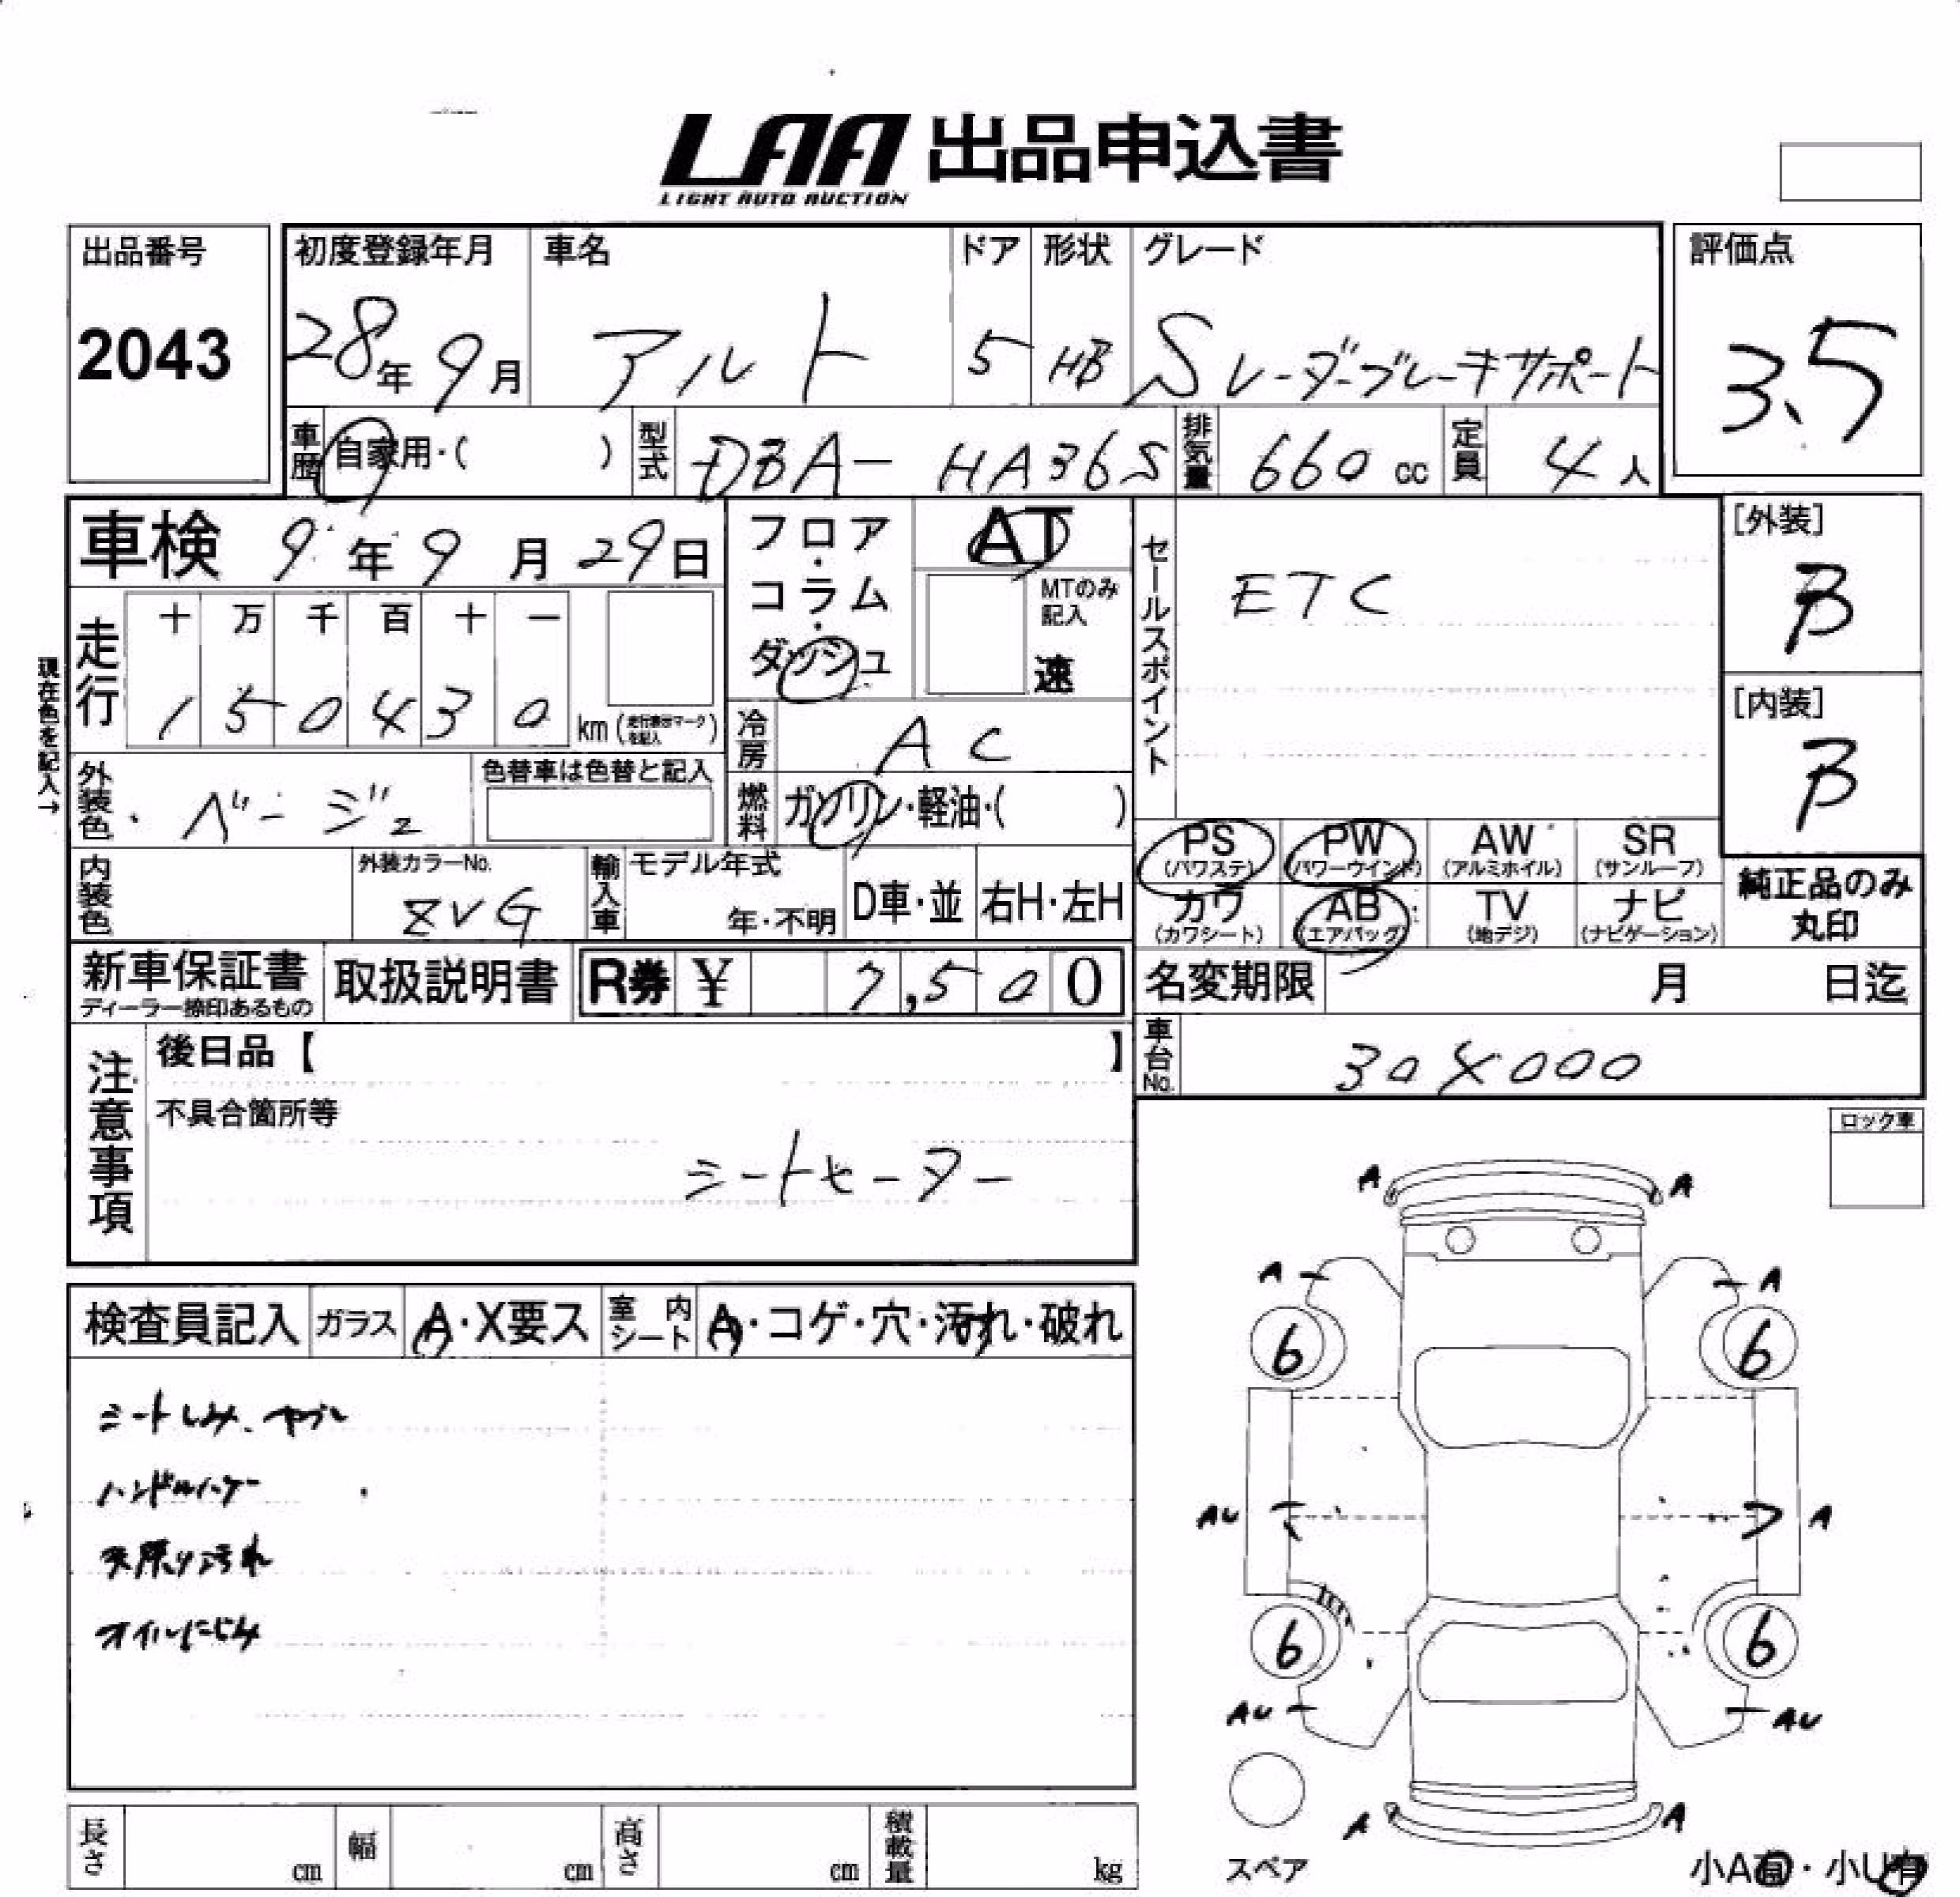 LAA 出品申込書
LIGHT AUTO AUCTION
出品番号
2043
初度登録年月
28年 9月
車名
アルト
ドア
5
形状
HB
グレード
Sレーダーブレーキサポート
評価点
3.5
車歴 自家用・( )
型式 DBA- HA36S
排気量 660 cc
定員 4 人
車検 9年 9月 29日
フロア・コラム・ダッシュ
AT
MTのみ記入
速
セールスポイント
ETC
[外装]
B
[内装]
B
現在色を記入→
走行
十 万 千 百 十 一
1 5 0 4 3 0 km (走行表示マークを記入)
冷房 AC
外装色 ベージュ
色替車は色替と記入
燃料 ガソリン・軽油・( )
PS (パワステ)
PW (パワーウインド)
AW (アルミホイル)
SR (サンルーフ)
カワ (カワシート)
AB (エアバッグ)
TV (地デジ)
ナビ (ナビゲーション)
純正品のみ丸印
内装色
外装カラーNo.
ZVG
輸入車
モデル年式
年・不明
D車・並
右H・左H
新車保証書
ディーラー捺印あるもの
取扱説明書
R券 ¥ 7,500
名変期限 月 日迄
車台No. 304000
注意事項
後日品【 】
不具合箇所等
シートヒーター
ロック車
検査員記入
ガラス A・X要ス
室内シート A・コゲ・穴・汚れ・破れ
シートしみ、ヤブレ
ハンドルハゲー
天張り汚れ
オイルにじみ
A A
A A
6 6
AU A
6 6
AU AU
A A
スペア
小A有・小U有
長さ cm
幅 cm
高さ cm
積載量 kg